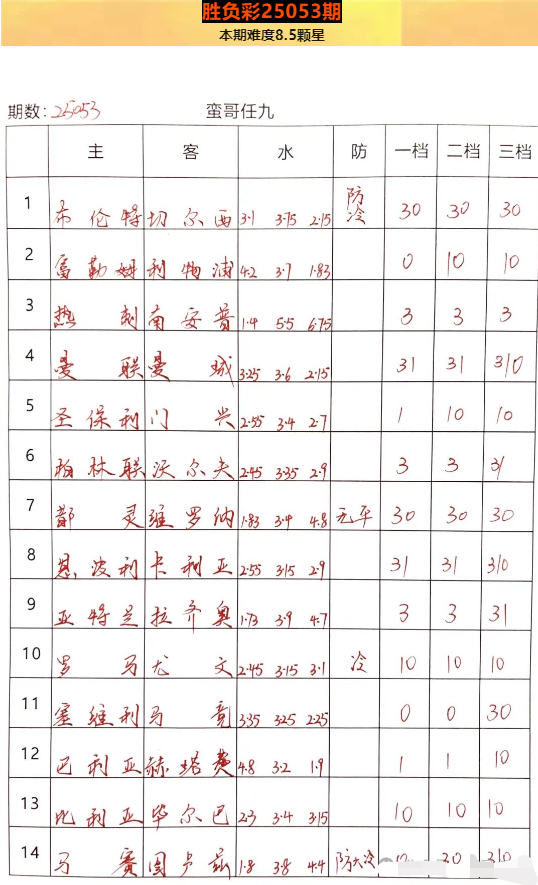 胜负彩25053期
本期难度8.5颗星
期数: 25053 蛮哥任九
主 客 水 防 一档 二档 三档
1 布伦特 切尔西 3.1 3.75 2.15 防冷 30 30 30
2 富勒姆 利物浦 4.2 3.7 1.83 0 10 10
3 热刺 南安普 1.4 5.5 6.75 3 3 3
4 曼联 曼城 3.25 3.6 2.15 31 31 310
5 圣保利 门兴 2.55 3.4 2.7 1 10 10
6 柏林联 沃尔夫 2.45 3.35 2.9 3 3 31
7 都灵 维罗纳 1.83 3.4 4.8 无平 30 30 30
8 恩波利 卡利亚 2.55 3.15 2.9 31 31 310
9 亚特兰 拉齐奥 1.73 3.9 4.7 3 3 31
10 罗马 尤文 2.45 3.15 3.1 冷 10 10 10
11 塞维利 马竞 3.35 3.25 2.25 0 0 30
12 巴利亚 赫塔费 4.8 3.2 1.9 1 1 10
13 比利亚 毕尔巴 2.3 3.4 3.15 10 10 10
14 马赛 图卢兹 1.8 3.8 4.4 防大冷 30 310